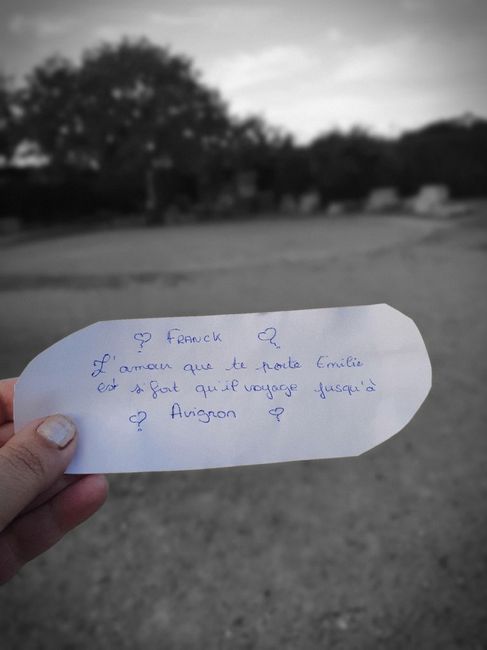 FRANCK
L'amour que te porte Emilie
est si fort qu'il voyage jusqu'à
Avignon